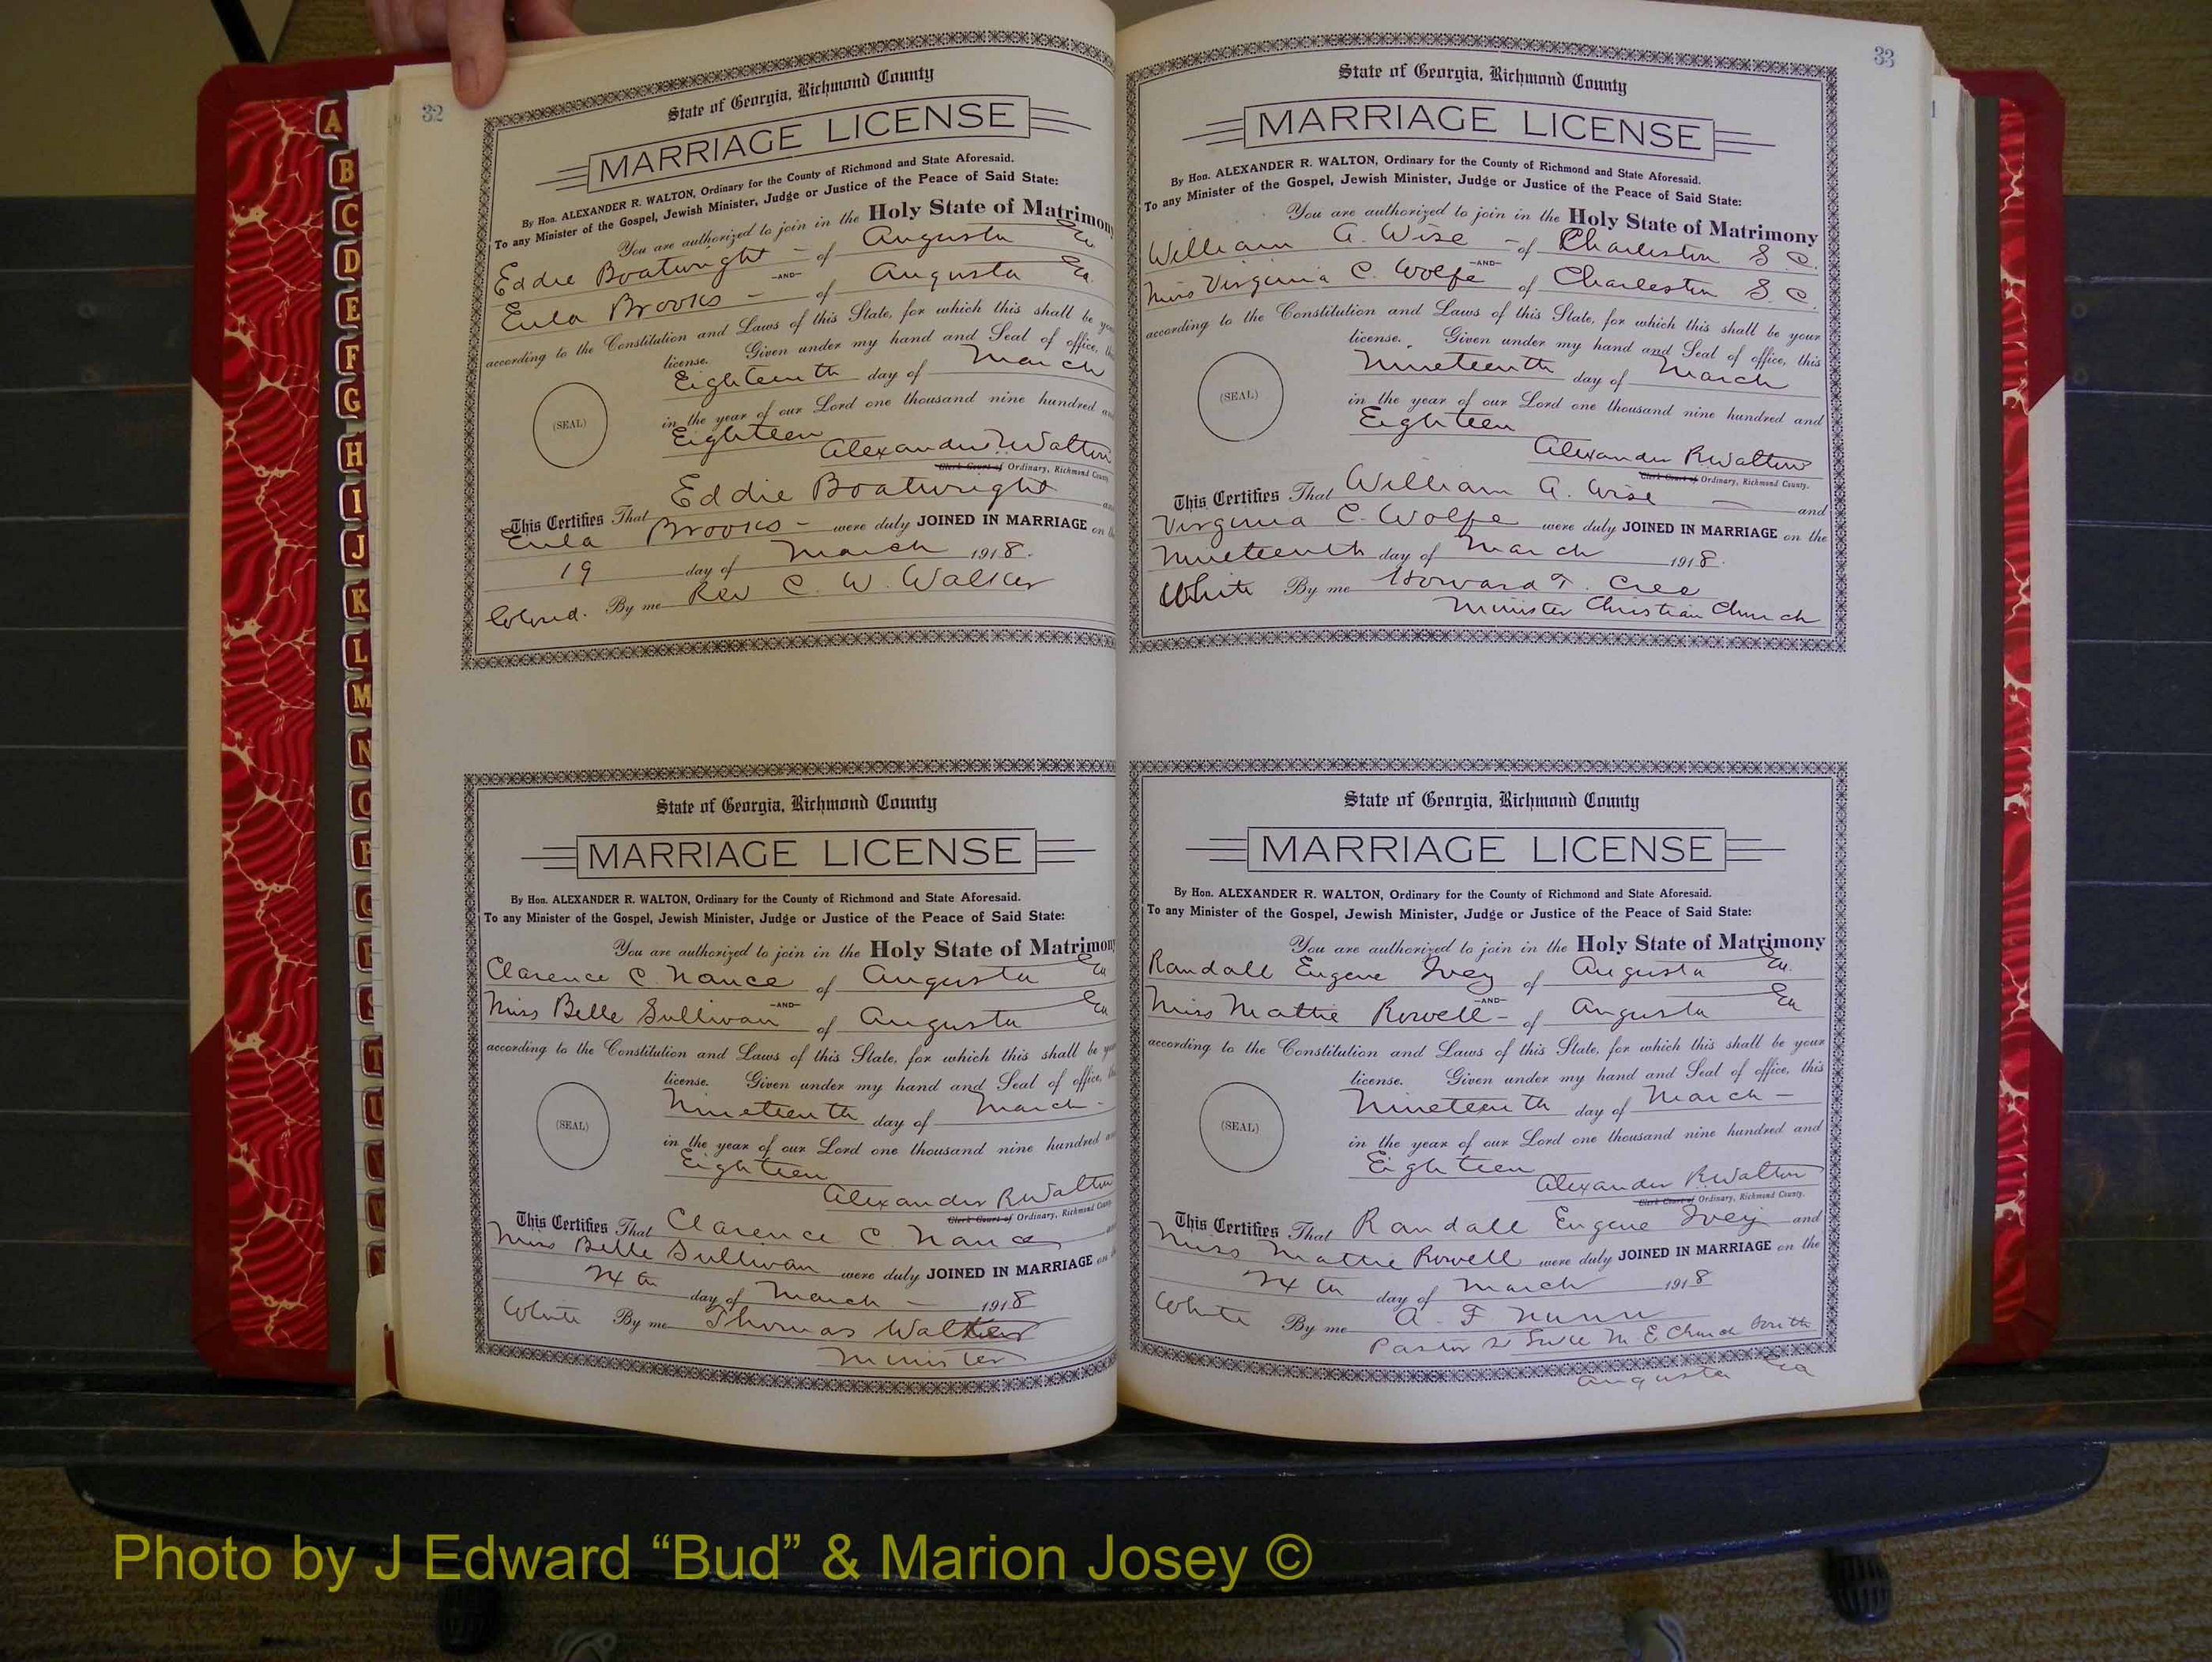 32
State of Georgia, Richmond County
MARRIAGE LICENSE
By Hon. ALEXANDER R. WALTON, Ordinary for the County of Richmond and State Aforesaid.
To any Minister of the Gospel, Jewish Minister, Judge or Justice of the Peace of Said State:
You are authorized to join in the Holy State of Matrimony
Eddie Boatwright — of Augusta Ga.
—AND—
Eula Brooks — of Augusta Ga.
according to the Constitution and Laws of this State, for which this shall be
license. Given under my hand and Seal of office,
Eighteenth day of March
(SEAL)
in the year of our Lord one thousand nine hundred
Eighteen
Alexander R Walton
Clerk Court of Ordinary, Richmond County
This Certifies That Eddie Boatwright
Eula Brooks — were duly JOINED IN MARRIAGE on
19 day of March 1918.
Colored. By me Rev C. W. Walker
State of Georgia, Richmond County
MARRIAGE LICENSE
By Hon. ALEXANDER R. WALTON, Ordinary for the County of Richmond and State Aforesaid.
To any Minister of the Gospel, Jewish Minister, Judge or Justice of the Peace of Said State:
You are authorized to join in the Holy State of Matrimony
Clarence C. Nance of Augusta Ga
—AND—
Miss Belle Sullivan of Augusta Ga
according to the Constitution and Laws of this State, for which this shall be
license. Given under my hand and Seal of office,
Nineteenth day of March —
(SEAL)
in the year of our Lord one thousand nine hundred
Eighteen
Alexander R Walton
Clerk Court of Ordinary, Richmond County
This Certifies That Clarence C. Nance
Miss Belle Sullivan were duly JOINED IN MARRIAGE on
day of March — 1918
White By me Thomas Walker
Minister
33
State of Georgia, Richmond County
MARRIAGE LICENSE
By Hon. ALEXANDER R. WALTON, Ordinary for the County of Richmond and State Aforesaid.
To any Minister of the Gospel, Jewish Minister, Judge or Justice of the Peace of Said State:
You are authorized to join in the Holy State of Matrimony
William G. Wise — of Charleston S. C.
—AND—
Miss Virginia C. Wolfe of Charleston S. C.
according to the Constitution and Laws of this State, for which this shall be your
license. Given under my hand and Seal of office, this
Nineteenth day of March
(SEAL)
in the year of our Lord one thousand nine hundred and
Eighteen
Alexander R Walton
Clerk Court of Ordinary, Richmond County.
This Certifies That William G. Wise — and
Virginia C. Wolfe were duly JOINED IN MARRIAGE on the
Nineteenth day of March 1918.
White By me Howard T. Cree
Minister Christian Church
State of Georgia, Richmond County
MARRIAGE LICENSE
By Hon. ALEXANDER R. WALTON, Ordinary for the County of Richmond and State Aforesaid.
To any Minister of the Gospel, Jewish Minister, Judge or Justice of the Peace of Said State:
You are authorized to join in the Holy State of Matrimony
Randall Eugene Ivey of Augusta Ga.
—AND—
Miss Mattie Rowell — of Augusta Ga
according to the Constitution and Laws of this State, for which this shall be your
license. Given under my hand and Seal of office, this
Nineteenth day of March —
(SEAL)
in the year of our Lord one thousand nine hundred and
Eighteen
Alexander R Walton
Clerk Court of Ordinary, Richmond County.
This Certifies That Randall Eugene Ivey and
Miss Mattie Rowell were duly JOINED IN MARRIAGE on the
day of March 1918
White By me A. F Nunn
Pastor M E Church South
Augusta Ga
A
B
C
D
E
F
G
H
I
J
K
L
M
N
O
P
Q
R
S
T
U
V
W
Photo by J Edward “Bud” & Marion Josey ©